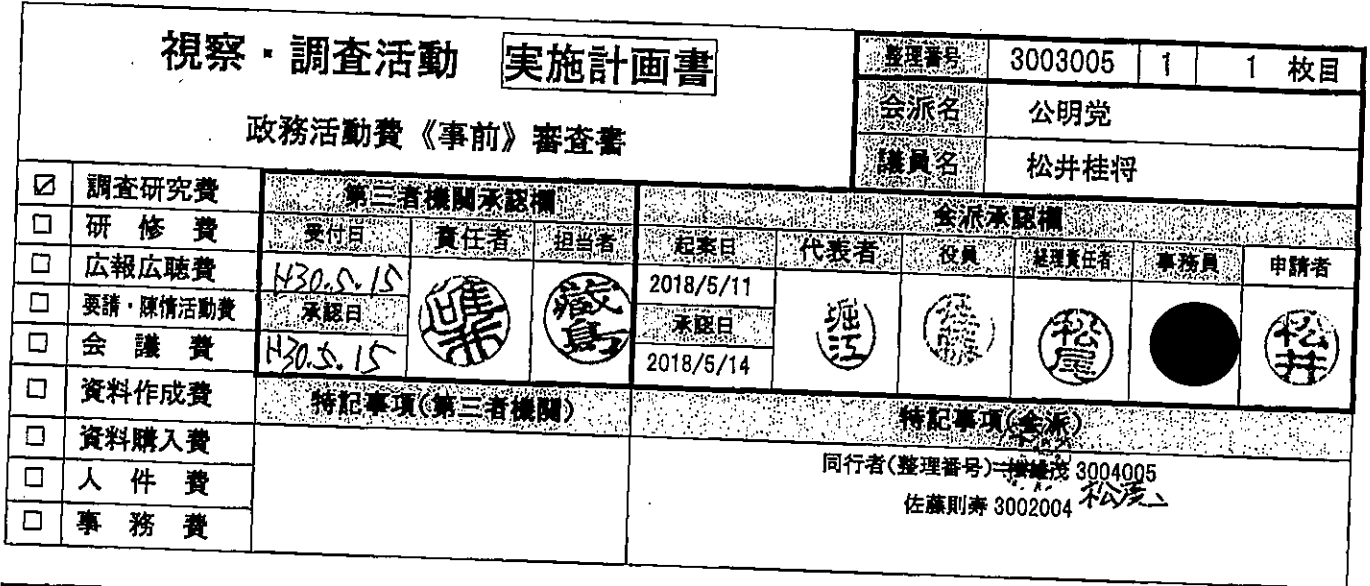 視察・調査活動 実施計画書
政務活動費《事前》審査書
整理番号 3003005 1 1 枚目
会派名 公明党
議員名 松井桂将
☑ 調査研究費
□ 研修費
□ 広報広聴費
□ 要請・陳情活動費
□ 会議費
□ 資料作成費
□ 資料購入費
□ 人件費
□ 事務費
第三者機関承認欄
受付日 責任者 担当者
H30.5.15
承認日
H30.5.15
会派承認欄
起案日 代表者 役員 経理責任者 事務員 申請者
2018/5/11
承認日
2018/5/14
堀江
松尾
松井
特記事項(第三者機関)
特記事項(会派)
同行者(整理番号) 茂 3004005
佐藤則寿 3002004